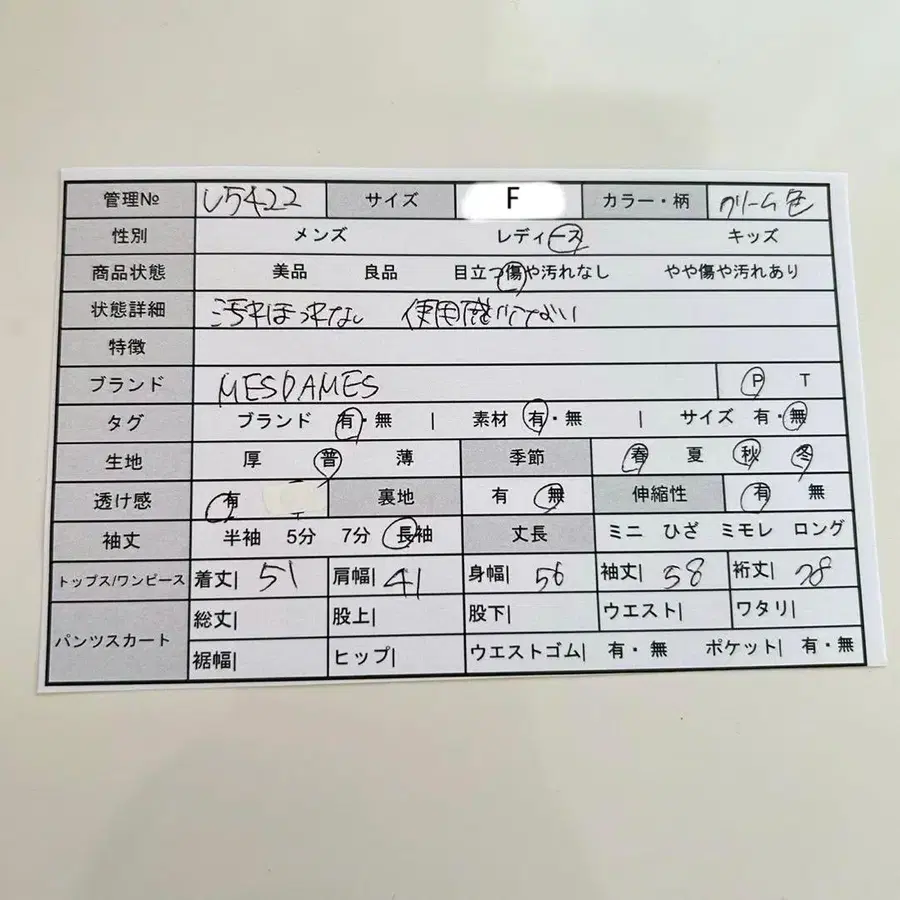 管理№ U5422 サイズ F カラー・柄 クリーム色
性別 メンズ レディース キッズ
商品状態 美品 良品 目立つ傷や汚れなし やや傷や汚れあり
状態詳細 汚れほつれなし 使用感
特徴
ブランド MESDAMES P T
タグ ブランド 有・無 | 素材 有・無 | サイズ 有・無
生地 厚 普 薄 季節 春 夏 秋 冬
透け感 有 裏地 有 無 伸縮性 有 無
袖丈 半袖 5分 7分 長袖 丈長 ミニ ひざ ミモレ ロング
トップス/ワンピース 着丈| 51 肩幅| 41 身幅| 56 袖丈| 58 裄丈| 78
パンツスカート 総丈| 股上| 股下| ウエスト| ワタリ|
裾幅| ヒップ| ウエストゴム| 有・無 ポケット| 有・無